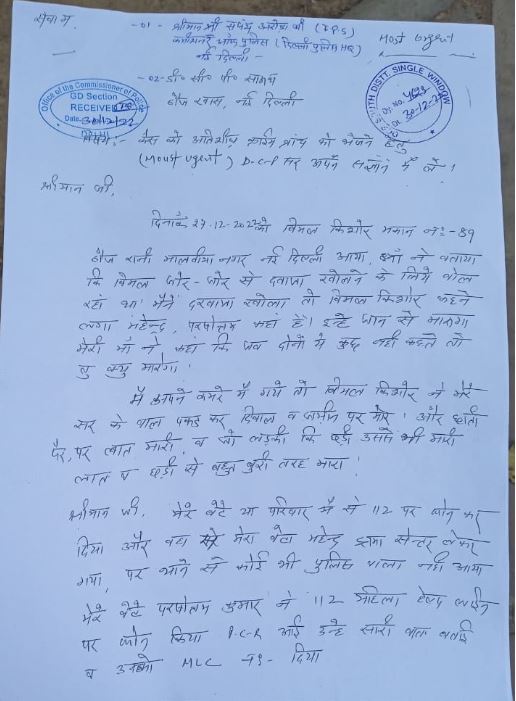 सेवा में,
-01- श्रीमान श्री संजय अरोड़ा जी (I.P.S)
कमिश्नर ऑफ पुलिस (दिल्ली पुलिस HQ)
Most Urgent
नई दिल्ली -
-02- डी० सी० पी० साउथ
हौज खास, नई दिल्ली
Office of the Commissioner of Police
GD Section
RECEIVED
Date 30/12/22
DELHI
SOUTH DISTT. SINGLE WINDOW
30-12-22
विषय: केस को अतिशीघ्र क्राईम ब्रांच को भेजने हेतु
(Moust Urgent) D.C.P सर अपने संज्ञान में लें!
श्रीमान जी,
दिनांक 27-12-2022 को विमल किशोर मकान नं:- 89
हौज रानी मालवीय नगर नई दिल्ली आया, माँ ने बताया
कि विमल जोर-जोर से दवाजा खोलने के लिये बोल
रहा था मैंने दरवाजा खोला तो विमल किशोर कहने
लगा महेन्द्र, परषोतम कहां हैं। इन्हें जान से मारूगा
मेरी माँ ने कहां कि जब दोनों ये कुछ नहीं कहते तो
तु क्यु मारेगा!
मैं अपने कमरे में गये तो विमल किशोर ने मेरे
सर के बाल पकड़ कर दिवाल व जमीन पर मारे! और छाती
पैर, पर लात मारी, व जो लड़की कि छड़ी उससे भी मारी
लात व छड़ी से बहुत बुरी तरह मारा!
श्रीमान जी, मेरे बेटे या परिवार में से 112 पर फोन कर
दिया और वहा से मेरा बेटा महेन्द्र ट्रामा सेन्टर लेकर
गया, पर थाने से कोई भी पुलिस वाला नहीं आया
मेरे बेटे परषोतम कुमार ने 112 महिला हेल्प लाईन
पर फोन किया P.C.R आई उन्हे सारी बात बताई
व उनको MLC नं- दिया